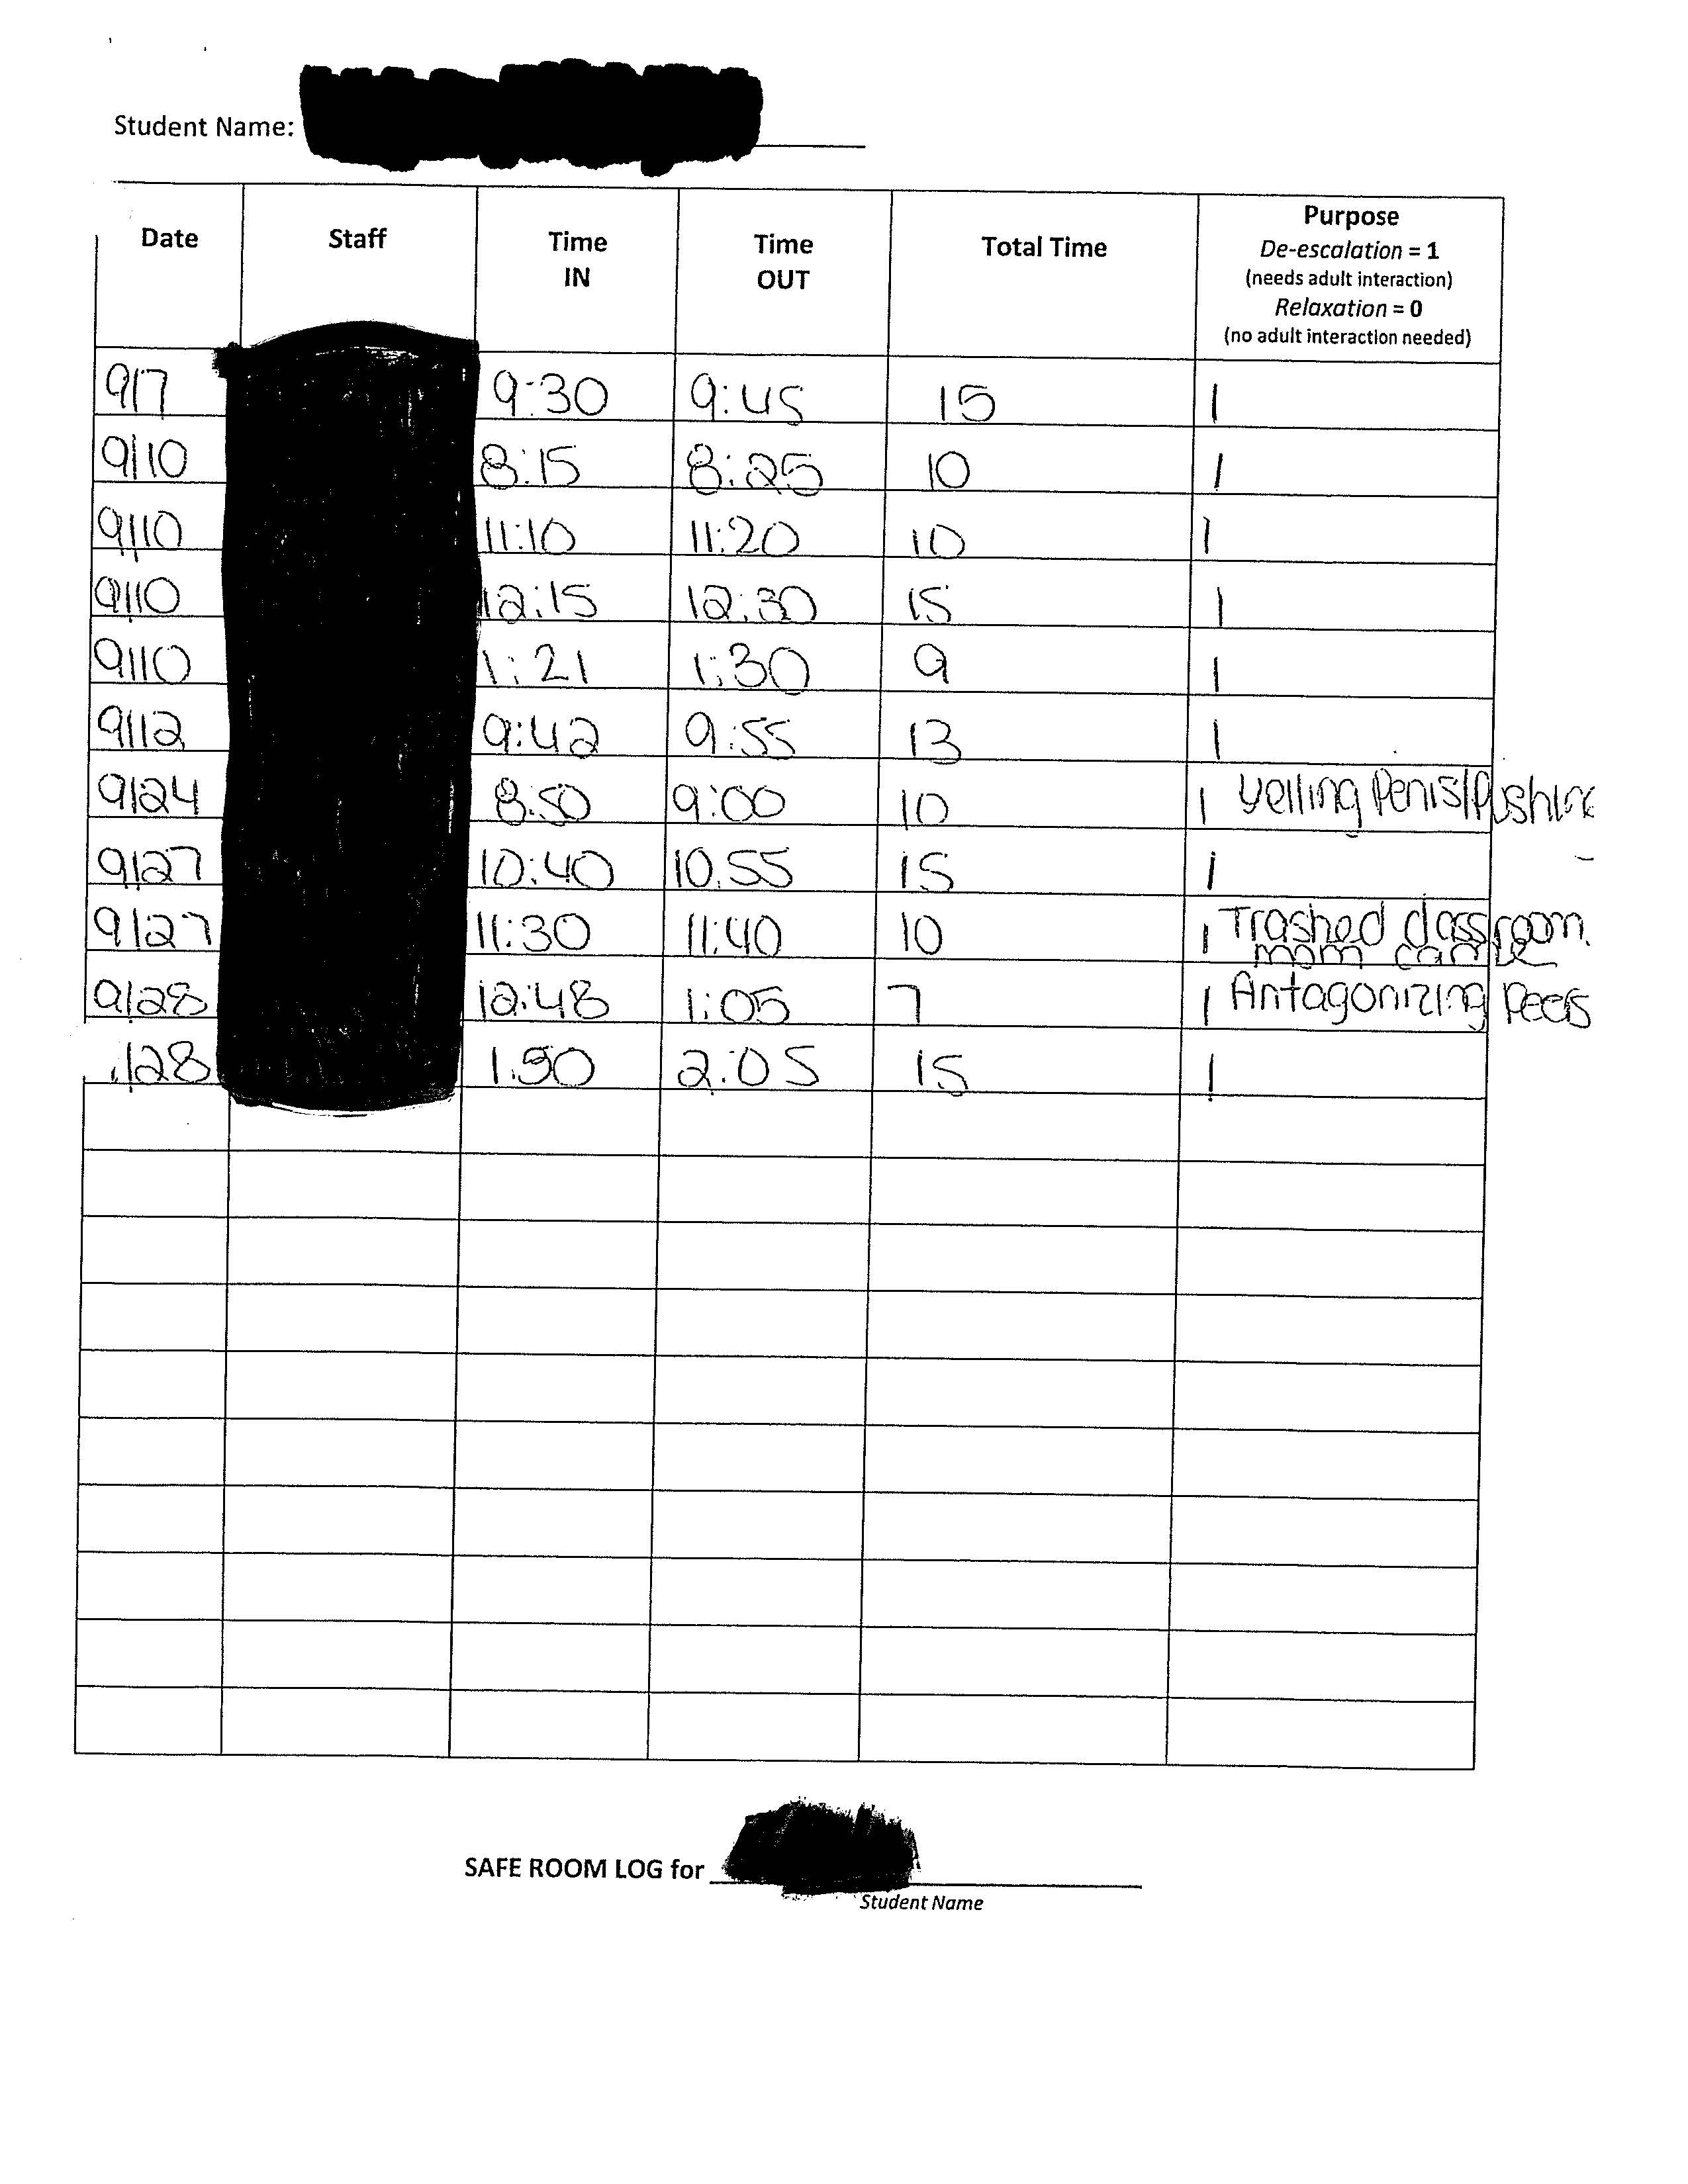 Student Name:
Date Staff Time IN Time OUT Total Time Purpose
De-escalation = 1
(needs adult interaction)
Relaxation = 0
(no adult interaction needed)
9/7 9:30 9:45 15 1
9/10 8:15 8:25 10 1
9/10 11:10 11:20 10 1
9/10 12:15 12:30 15 1
9/10 1:21 1:30 9 1
9/12 9:42 9:55 13 1
9/24 8:50 9:00 10 1 Yelling Penis/Pushing
9/27 10:40 10:55 15 1
9/27 11:30 11:40 10 1 Trashed classroom.
mom came
9/28 12:48 1:05 7 1 Antagonizing Peers
/28 1:50 2:05 15 1
SAFE ROOM LOG for
Student Name